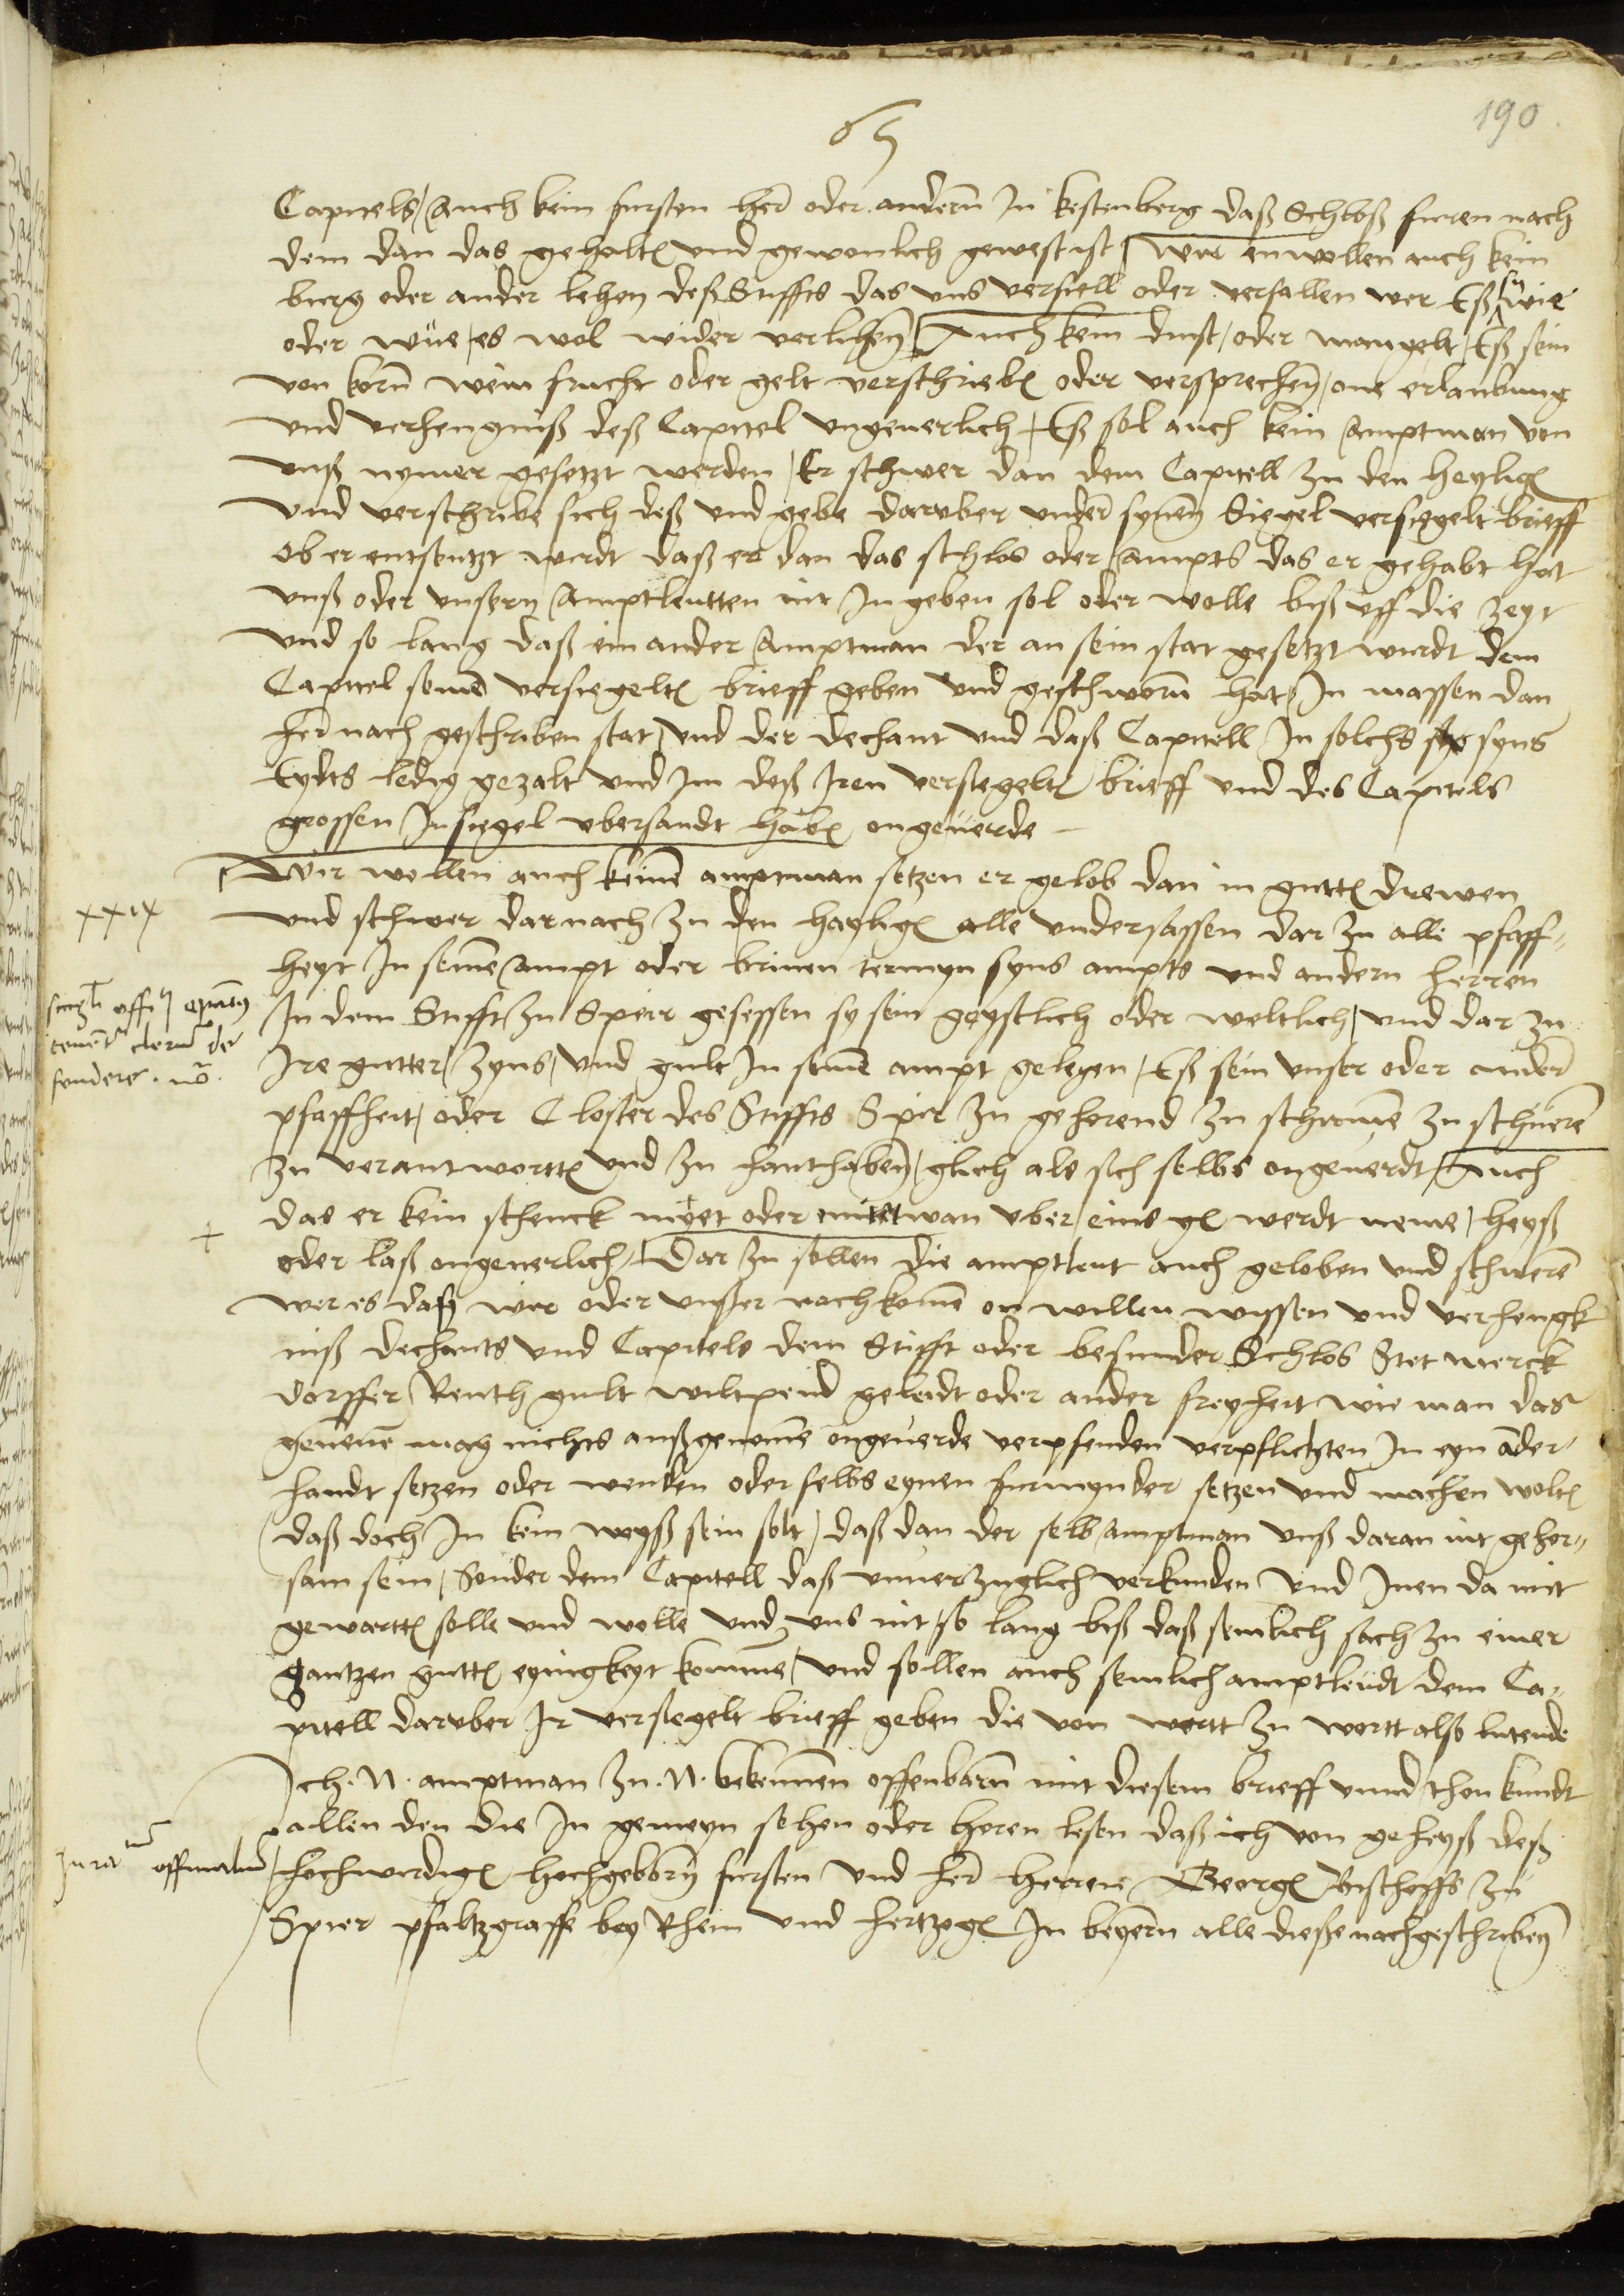 65
190
Capitels / Auch kein fursten her oder andern In kestenberg daß Schloß furen nach
dem dan das gehalten und gewonlich gewest ist / wir enwollen auch kein
burg oder ander lehen deß Stiffts das uns verfiell oder verfallen wer Eß wie
oder wue / es wol wider verlichen / Auch kein dinst / oder mangelt / Eß sein
von korn wein frucht oder gelt verschrieben oder versprechen / one erlaubung
und verhengniß deß Capitel ungeuerlich / Eß sol auch kein Amptman von
unß nymer gesetzt werden / Er schwer dan dem Capitell zu den heyligen
und verschribe sich deß und gebe daruber under synem Siegel versiegelt brieff
ob er entsetzt wirdt daß er dan das schlos oder Ampts das er gehabt hat
unß oder unsern Amptleutten nit In geben sol oder wolle biß uff die zeyt
und so lang daß ein ander Amptman der an sein stat gesetzt wurdt dem
Capitel seinen versiegelten brieff geben und geschworn hat / In massen dan
her nach geschriben stat / und der dechant und daß Capitell In solchs syns
Eydts ledig gezalt und Im deß Iren versiegelten brieff und des Capitels
grossen Insiegel ubersandt haben ongeuerde
Wir wollen auch keinen amptman setzen er gelob dan in gutten drewen
und schwer dar nach zu den hayligen alle undersassen dar zu alle pfaff-
heyt In seinem Ampt oder brinen termyn syns ampts und andern herren
In dem Stifft zu Speir gesessen sy sein geystlich oder weltlich / und dar zu
Ire gutter / zyns / und gult In seinem ampt gelegen / Eß sein unser oder ander
pfaffheit / oder Closter des Stiffts Spir zu gehorend zu schirmen zu schuren
zu verantwortten und zu hanthaben / glich als sich selbs ongeuerdt / Auch
das er kein schenck myet oder mietwan uber eins gl werdt neme / heyß
oder laß ongeuerlich / Dar zu sollen die amptleut auch geloben und schweren
wer es daß wir oder unßer nachkomen on willen wissen und verhengk
niß dechants und Capitels dem Stifft oder besunder Schlos Stet merck
dorffer Renth gult wiltpend geleidt oder ander freyheit wie man das
genenen mag nichts außgenomen ongeuerde verpfenden verpflichten In eyn ander
handt setzen oder wenden oder selbs eynen furmynder setzen und machen wolten
daß doch In kein weyß sein solt / daß dan der selb Amptman unß daran nit gehor-
sam sein / Sonder dem Capitell daß unuerzuglich verkunden und Inen da mit
gewartten solle und wolle und uns nit / so lang biß daß semlich sach zu einer
gantzen gutten eynigkeyt komme / und sollen auch semlich amptleudt dem Ca-
pitell daruber Ir versiegelt brieff geben die von wortt zu wortt also lutende
Ich . N . amptman zu . N . bekennen offenbarn mit diesem brieff unnd thon kundt
allen den die In gemeyn sehen oder horen lesen daß ich von geheyß deß
hochwirdigen hochgeborn fursten und her herren Georgen Bischoffs zu
Spier pfaltzgraffe bey Rhein und hertzogen In beyern alle diesse nachgeschriben
xxix